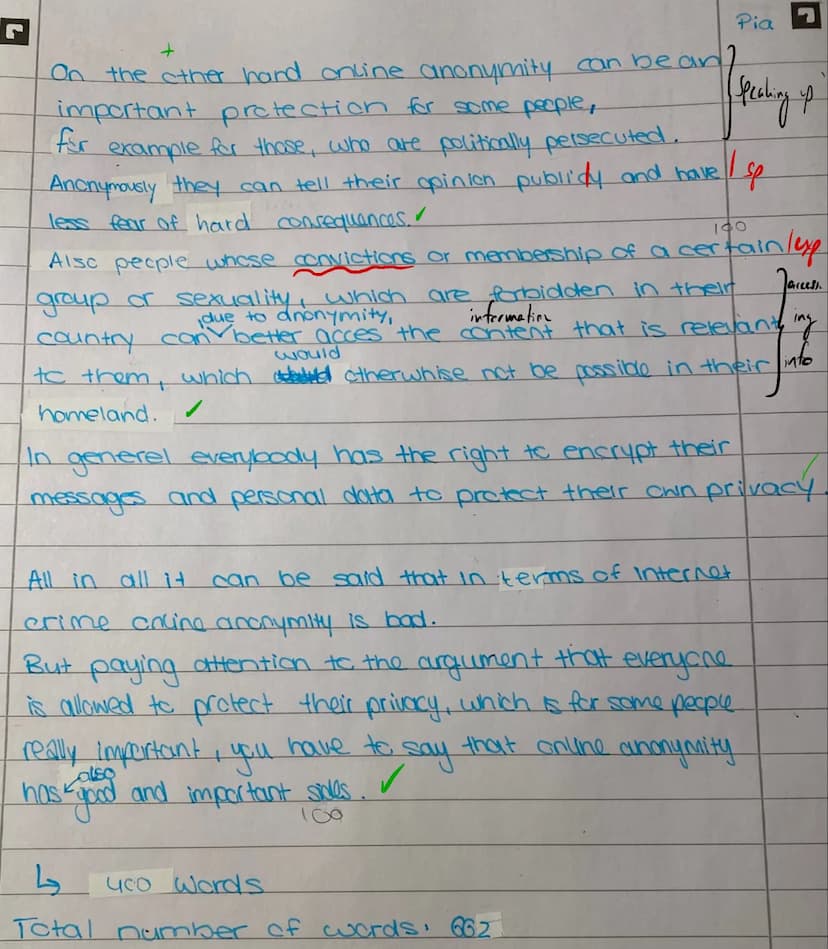 Pia
+
On the other hand online anonymity can be an
important protection for some people,
for example for those, who are politically persecuted.
Speaking up
Anonymously they can tell their opinion publicly and have / sp
less fear of hard consequences. ✓
100
Also people whose convictions or membership of a certain /exp
group or sexuality, which are forbidden in their
due to anonymity,
information
country can better acces the content that is relevant
access.
ing
info
would
to them, which otherwhise not be possible in their
homeland. ✓
In generel everybody has the right to encrypt their
messages and personal data to protect their own privacy. ✓
All in all it can be said that in terms of internet
crime online anonymity is bad.
But paying attention to the argument that everyone
is allowed to protect their privacy, which is for some people
really important, you have to say that online anonymity
also
has good and important sides. ✓
100
↳ 400 Words
Total number of words: 662